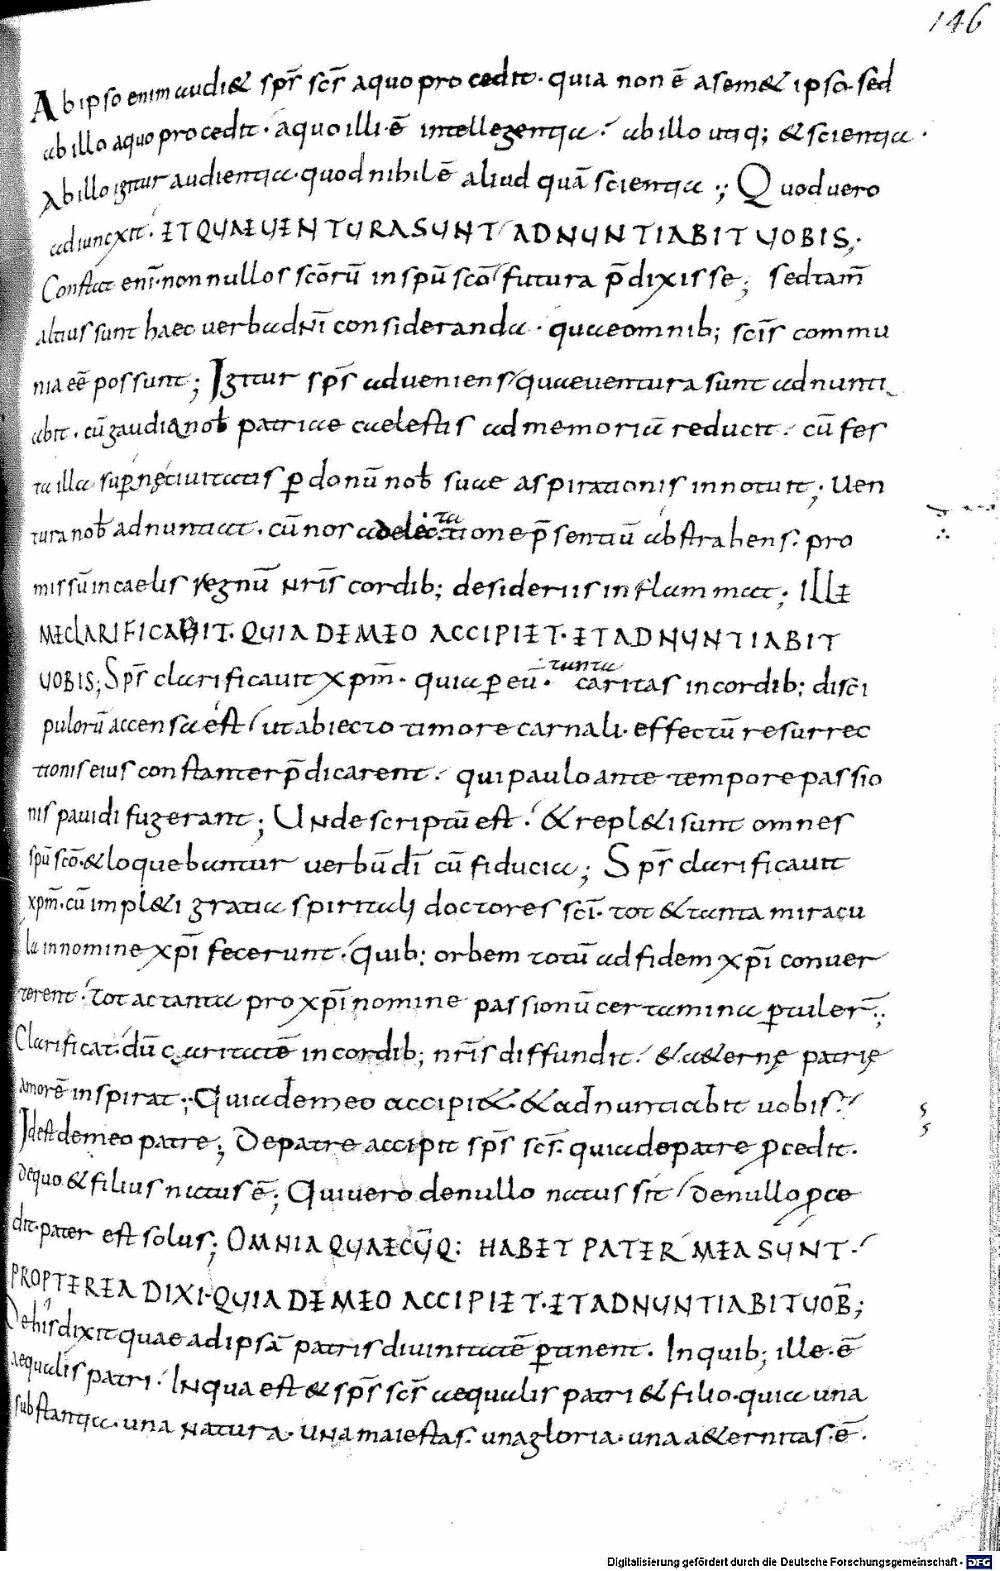 146
Ab ipso enim audi& sp̄s sc̄s a quo procedit. quia non ē a sem& ipso. sed
ab illo a quo procedit. a quo illi ē intellegentia. ab illo utiq; & scientia.
Ab illo igitur audientia. quod nihil ē aliud quā scientia.; Quod uero
adiunxit. ET QUAE UENTURA SUNT ADNUNTIABIT UOBIS;.
Constat enī. non nullos sc̄orū in sp̄u sc̄o futura p̄dixisse; sed tam̄
altius sunt haec uerba dn̄i consideranda. quae omnib; sc̄is commu
nia eē possunt; Igitur sp̄s adueniens quae uentura sunt adnunti
abit. cū gaudia nob̄ patriae caelestis ad memoriā reducit. cū fes
ta illa supn̄ę ciuitatis p̄ donū nob̄ suae aspirationis innotuit; Uen
tura nob̄ adnuntiat. cū nos a delectatione p̄sentiū abstrahens. pro
missū in caelis regnū nr̄is cordib; desideriis inflammat; ILLE
ME CLARIFICABIT. QUIA DE MEO ACCIPIET. ET ADNUNTIABIT
UOBIS; Sp̄s clarificauit xp̄m. quia p̄ eū. tanta caritas in cordib; disci
pulorū accensa est ut abiecto timore carnali. effectū resurrec
tionis eius constanter p̄dicarent. qui paulo ante tempore passio
nis pauidi fugerant; Unde scriptū est. & repl&i sunt omnes
sp̄u sc̄o. & loquebantur uerbū dī cū fiducia; Sp̄s clarificauit
xp̄m. cū impl&i gratia spiritali doctores sc̄i. tot & tanta miracu
la in nomine xp̄i fecerunt. quib; orbem totū ad fidem xp̄i conuer
terent. tot ac tanta pro xp̄i nomine passionū certamina p̄tuler̄;
Clarificat. dū caritatē in cordib; nr̄is diffundit. & a&ernę patrię
amorē inspirat; Quia de meo accipi&. & adnuntiabit uobis.
Id est de meo patre; De patre accipit sp̄s sc̄s. quia de patre p̄cedit.
de quo & filius natus ē; Qui uero de nullo natus sit de nullo p̄ce
dit. pater est solus; OMNIA QUAECŪQ: HABET PATER MEA SUNT.
PROPTEREA DIXI. QUIA DE MEO ACCIPIET. ET ADNUNTIABIT UOB̄;
De his dixit quae ad ipsā patris diuinitatē p̄tinent. In quib; ille ē
aequalis patri. In qua est & sp̄s sc̄s aequalis patri & filio. quia una
substantia. una natura. una maiestas. una gloria. una a&ernitas. ē.
Digitalisierung gefördert durch die Deutsche Forschungsgemeinschaft - DFG